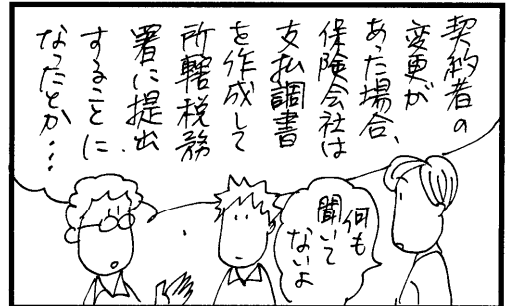 契約者の
変更が
あった場合、
保険会社は
支払調書
を作成して
所轄税務
署に提出
することに
なったとか…
何も
聞いて
ないよ